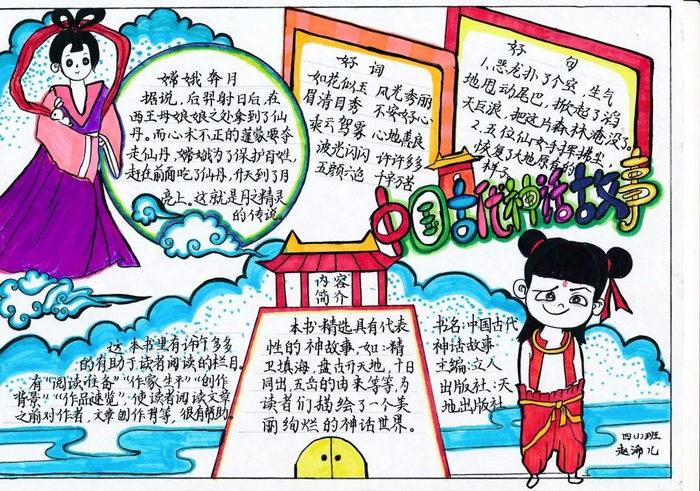 嫦娥奔月
据说，后羿射日后，在
西王母娘娘之处拿到了仙
丹。而心术不正的蓬蒙要夺
走仙丹，嫦娥为了保护百姓，
赶在前面吃了仙丹，升天到了月
亮上。这就是月之精灵
的传说。
好词
如花似玉 风光秀丽
眉清目秀 不安好心
乘云驾雾 心地善良
波光闪闪 许许多多
五颜六色 千辛万苦
好句
1.恶龙扑了个空，生气
地甩动尾巴，掀起了滔
天巨浪，把这片森林淹没了。
2.五位仙女手挥拂尘，
恢复了大地原有的
样子
中国古代神话故事
内容
简介
本书精选具有代表
性的神故事，如：精
卫填海，盘古开天地，十日
同出，五岳的由来等等，为
读者们描绘了一个美
丽绚烂的神话世界。
这本书里有许许多多
的有助于读者阅读的栏目。
有“阅读准备”“作家生平”“创作
背景”“作品速览”，使读者阅读文章
之前对作者，文章创作背景，很有帮助。
书名：中国古代
神话故事
主编：立人
出版社：天
地出版社
四(1)班